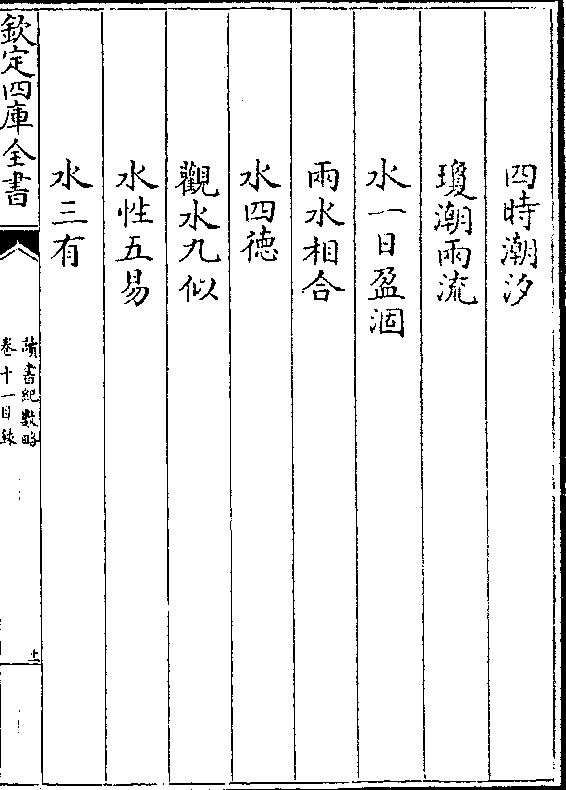 四時潮汐
瓊潮兩流
水一日盈涸
兩水相合
水四徳
觀水九似
水性五易
水三有
欽定四庫全書
讀書紀數略
卷十一目録
十一